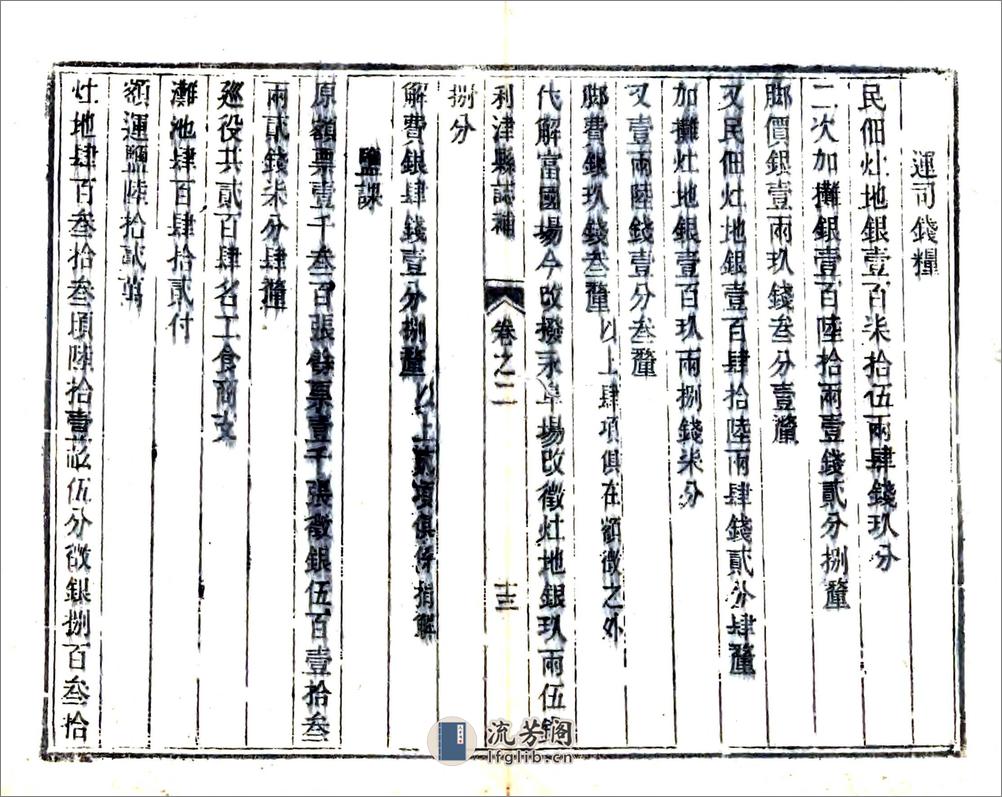 運司錢糧
民佃灶地銀壹百柒拾伍兩肆錢玖分
二次加攤銀壹百陸拾兩壹錢貳分捌釐
脚價銀壹兩玖錢叁分壹釐
又民佃灶地銀壹百肆拾陸兩肆錢貳分肆釐
加攤灶地銀壹百玖兩捌錢柒分
又壹兩陸錢壹分叁釐
脚費銀玖錢叁釐以上肆項俱在額徵之外
代解富國場今改撥永阜場改徵灶地銀玖兩伍錢
利津縣誌補 卷之二 十三
捌分
解費銀肆錢壹分捌釐以上貳項俱係指解
鹽課
原額票壹千叁百張餘票壹千張徵銀伍百壹拾叁
兩貳錢柒分肆釐
廵役共貳百肆名工食商支
灘池肆百肆拾貳付
額運鹽陸拾貳萬
灶地肆百叁拾叁頃陸拾壹畝伍分徵銀捌百叁拾
流芳閣
lfglib.cn